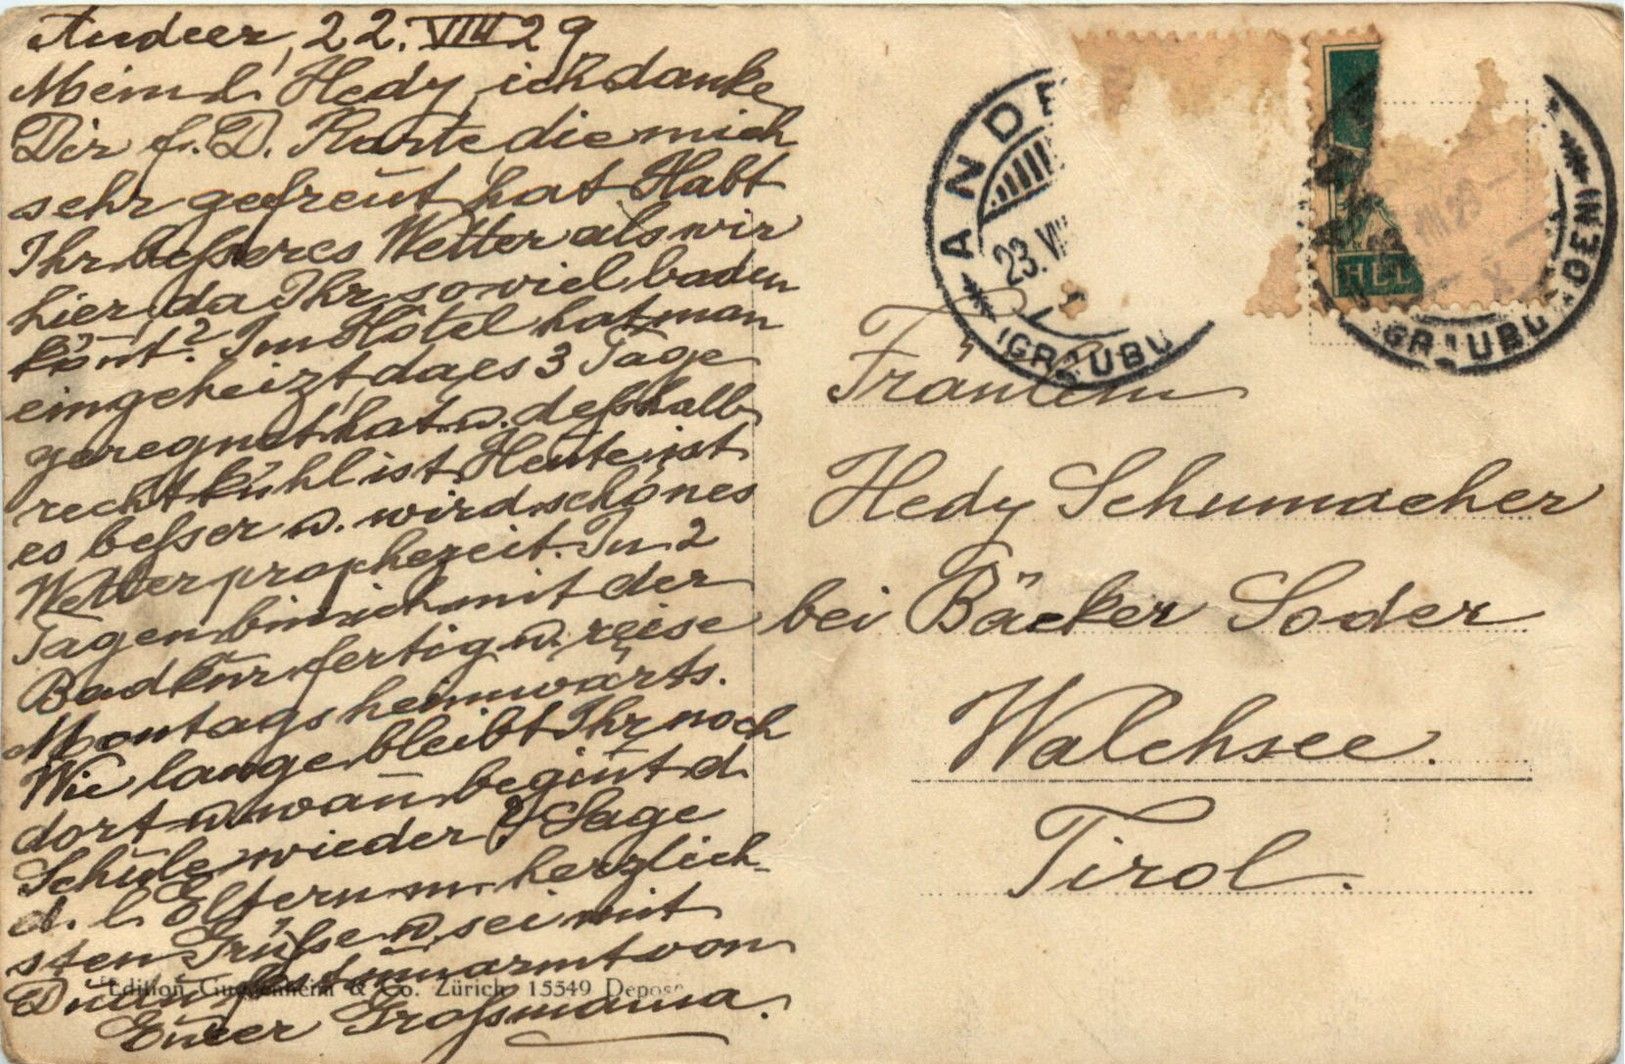 Andeer, 22. VIII 29
Mein l. Hedy, ich danke
Dir f. D. Karte, die mich
sehr gefreut hat. Habt
Ihr beßeres Wetter als wir
hier, da Ihr soviel baden
kön̄t? Im Hôtel hat man
eingeheizt, da es 3 Tage
geregnet hat u. deßhalb
recht kühl ist. Heute ist
es beßer u. wird schönes
Wetter prophezeit. In 2
Tagen bin ich mit der
Badkur fertig u. reise
Montags heimwärts.
Wie lange bleibt Ihr noch
dort u. wan̄ begin̄t d.
Schule wieder? Sage
d. l. Eltern m. herzlich-
sten Grüße u. sei mit
umarmt von
Euer Großmama.
Edition Guggenheim & Co. Zürich 15549
ANDE
23. VII
(GRAUBÜ
HEL
VIII 29
(GRAUBÜNDEN)
Fräulein
Hedy Schumacher
bei Bäcker Soder
Walchsee.
Tirol.